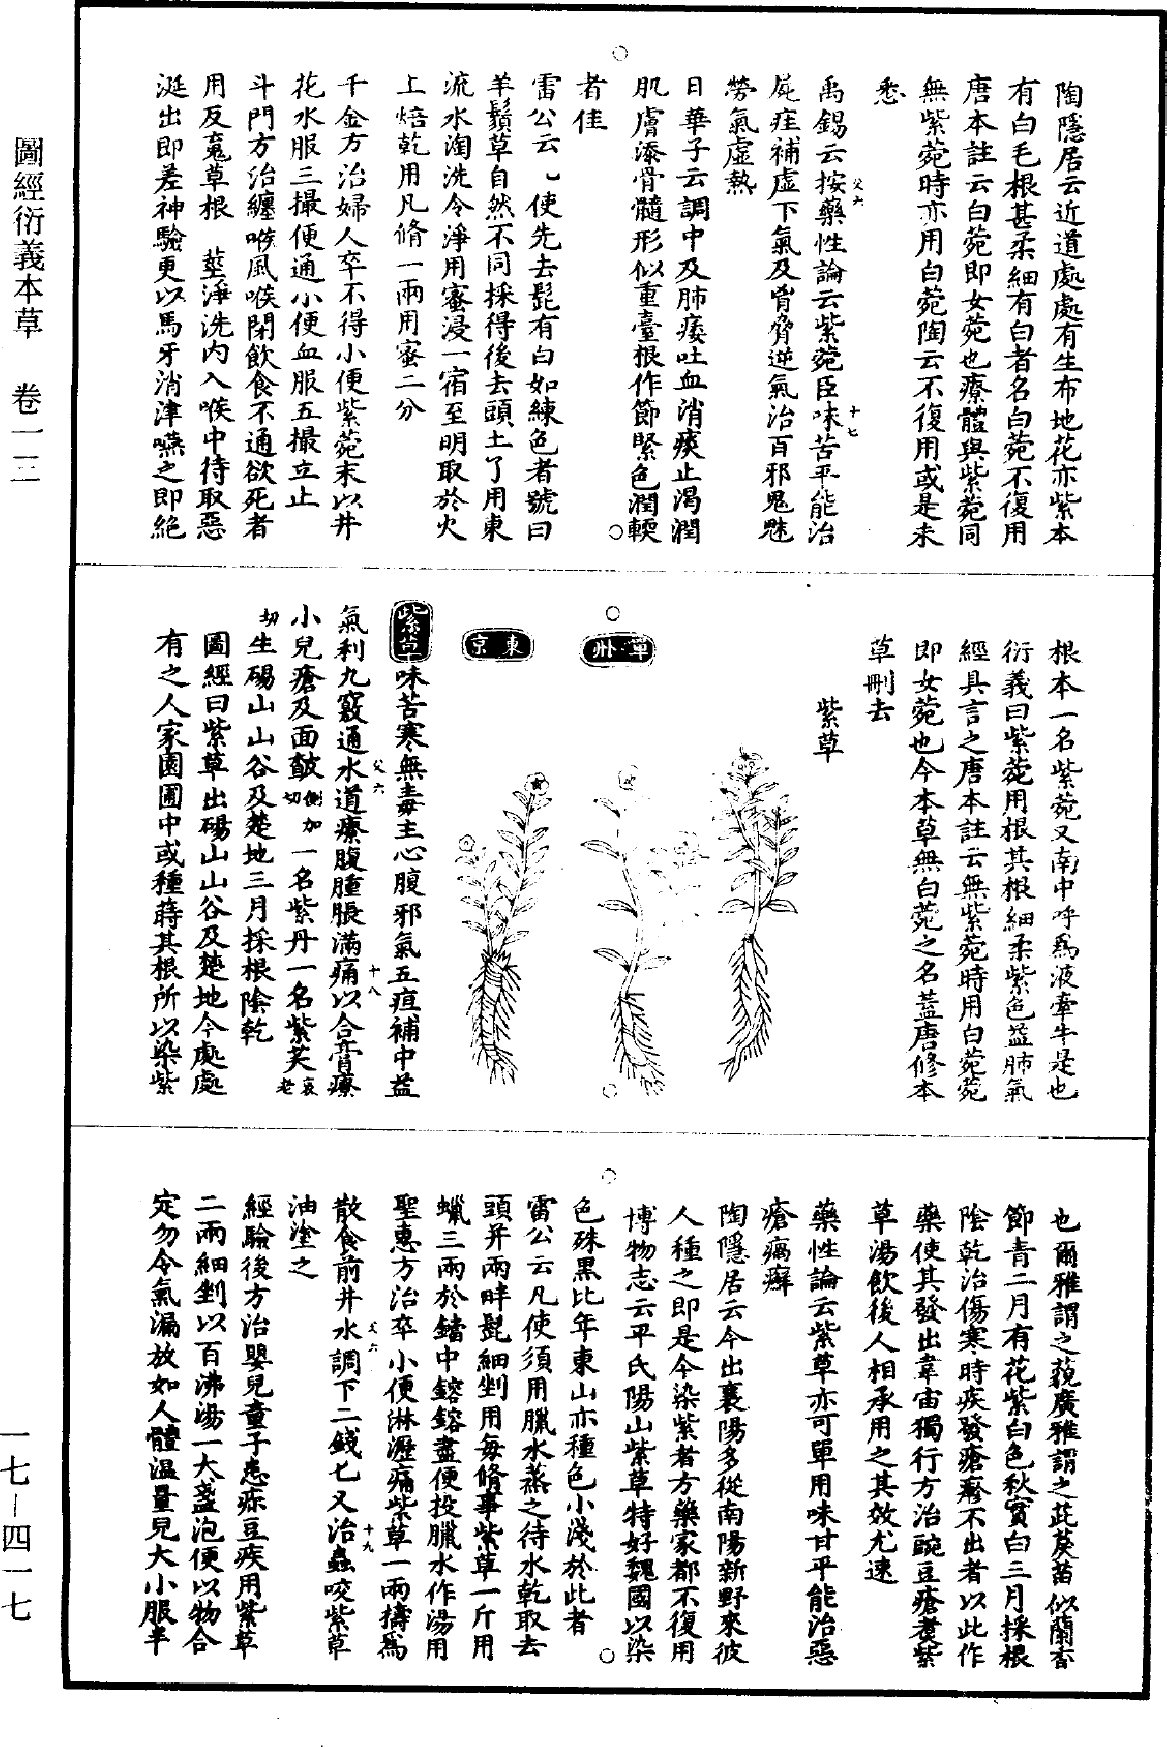 圖經衍義本草　卷一二
陶隱居云近道處處有生布地花亦紫本
有白毛根甚柔細有白者名白菀不復用
唐本註云白菀即女菀也療體與紫菀同
無紫菀時亦用白菀陶云不復用或是未
悉
禹錫云按藥性論云紫菀臣味苦平能治
尸疰補虛下氣及胷脅逆氣治百邪鬼魅
勞氣虛熱
日華子云調中及肺痿吐血消痰止渴潤
肌膚添骨髓形似重臺根作節緊色潤輭
者佳
雷公云凡使先去髭有白如練色者號曰
羊鬚草自然不同採得後去頭土了用東
流水淘洗令淨用蜜浸一宿至明取於火
上焙乾用凡脩一兩用蜜二分
千金方治婦人卒不得小便紫菀末以井
花水服三撮便通小便血服五撮立止
斗門方治纏喉風喉閉飲食不通欲死者
用反䰟草根　莖淨洗內入喉中待取惡
涎出即差神驗更以馬牙消津嚥之即絕
父六
十七
根本一名紫菀又南中呼為液牽牛是也
衍義曰紫菀用根其根細柔紫色益肺氣
經具言之唐本註云無紫菀時用白菀菀
即女菀也今本草無白菀之名蓋唐修本
草刪去
紫草
單州
東京
紫草味苦寒無毒主心腹邪氣五疸補中益
氣利九竅通水道療腹腫脹滿痛以合膏療
小兒瘡及面皻側加切一名紫丹一名紫芺哀老
切生碭山山谷及楚地三月採根陰乾
圖經曰紫草出碭山山谷及楚地今處處
有之人家園圃中或種蒔其根所以染紫
父六
十八
也爾雅謂之藐廣雅謂之茈䓞苗似蘭香
節青二月有花紫白色秋實白三月採根
陰乾治傷寒時疾發瘡疹不出者以此作
藥使其發出韋宙獨行方治豌豆瘡煑紫
草湯飲後人相承用之其效尤速
藥性論云紫草亦可單用味甘平能治惡
瘡瘑癬
陶隱居云今出襄陽多從南陽新野來彼
人種之即是今染紫者方藥家都不復用
博物志云平氏陽山紫草特好魏國以染
色殊黑比年東山亦種色小淺於此者
雷公云凡使須用臘水蒸之待水乾取去
頭并兩畔髭細剉用每脩事紫草一斤用
蠟三兩於鐺中鎔鎔盡便投臘水作湯用
聖惠方治卒小便淋瀝痛紫草一兩擣為
散食前井水調下二錢匕又治蟲咬紫草
油塗之
經驗後方治嬰兒童子患疹豆疾用紫草
二兩細剉以百沸湯一大盞泡便以物合
定勿令氣漏放如人體溫量兒大小服半
父六
十九
一七—四一七